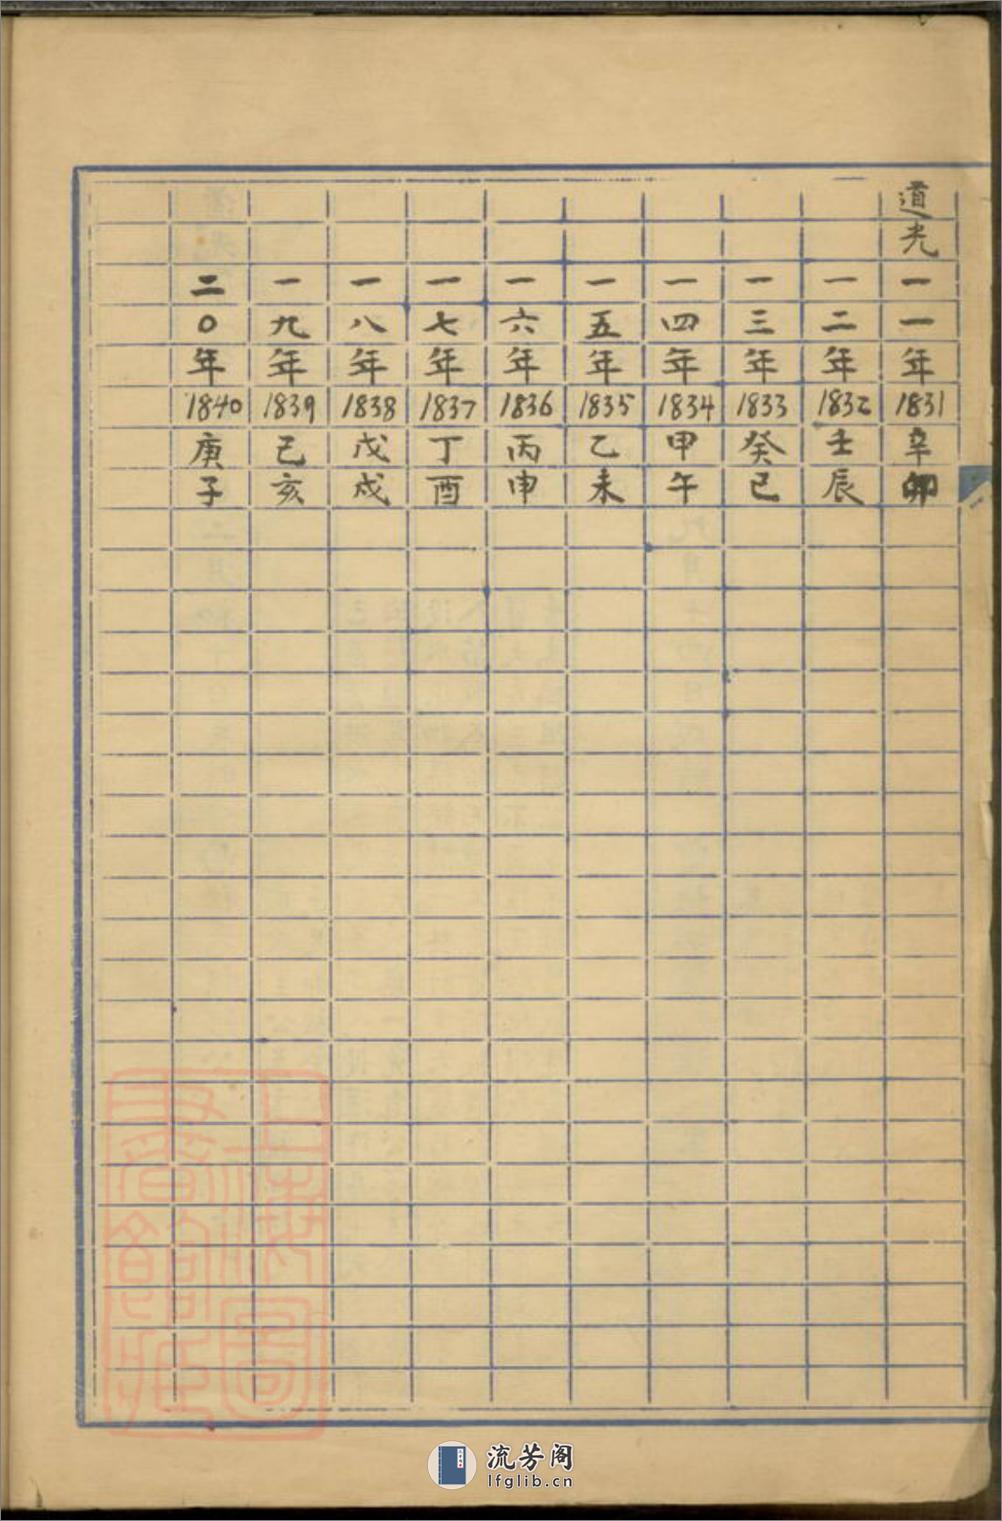 道光
一一年1831辛卯
一二年1832壬辰
一三年1833癸巳
一四年1834甲午
一五年1835乙未
一六年1836丙申
一七年1837丁酉
一八年1838戊戌
一九年1839己亥
二〇年1840庚子
上海圖書館藏
流芳阁
lfglib.cn